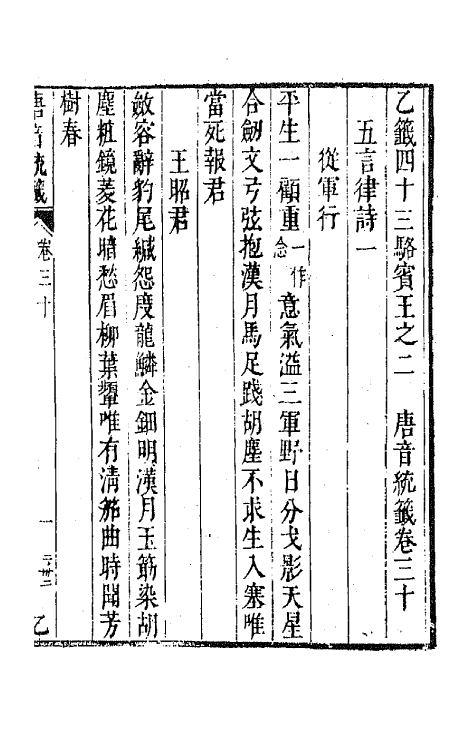 乙籤四十三駱賓王之二　唐音統籤卷三十
五言律詩一
從軍行
平生一顧重一作念意氣溢三軍野日分戈影天星
合劔文弓弦抱漢月馬足踐胡塵不求生入塞唯
當死報君
王昭君
斂容辭豹尾緘怨度龍鱗金鈿明漢月玉筯染胡
塵粧鏡菱花暗愁眉柳葉顰唯有清笳曲時聞芳
樹春
唐音統籤
卷三十
一
乙